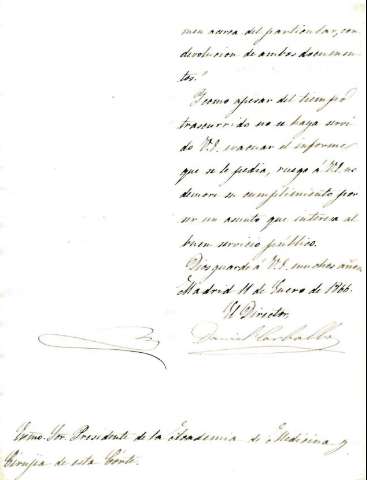 men acerca del particular, con
devolucion de ambos documen-
tos."
Y como apesar del tiempo
trascurrido no se haya servi
do V.E. evacuar el informe
que se le pedia, ruego á V.E. no
demore su cumplimiento por
ser un asunto que interesa al
buen servicio público.
Dios guarde á V.E. muchos años.
Madrid 11 de Enero de 1866.
El Director,
Daniel Carballo
Exmo. Sor. Presidente de la Academia de Medicina y
Cirujia de esta Corte.